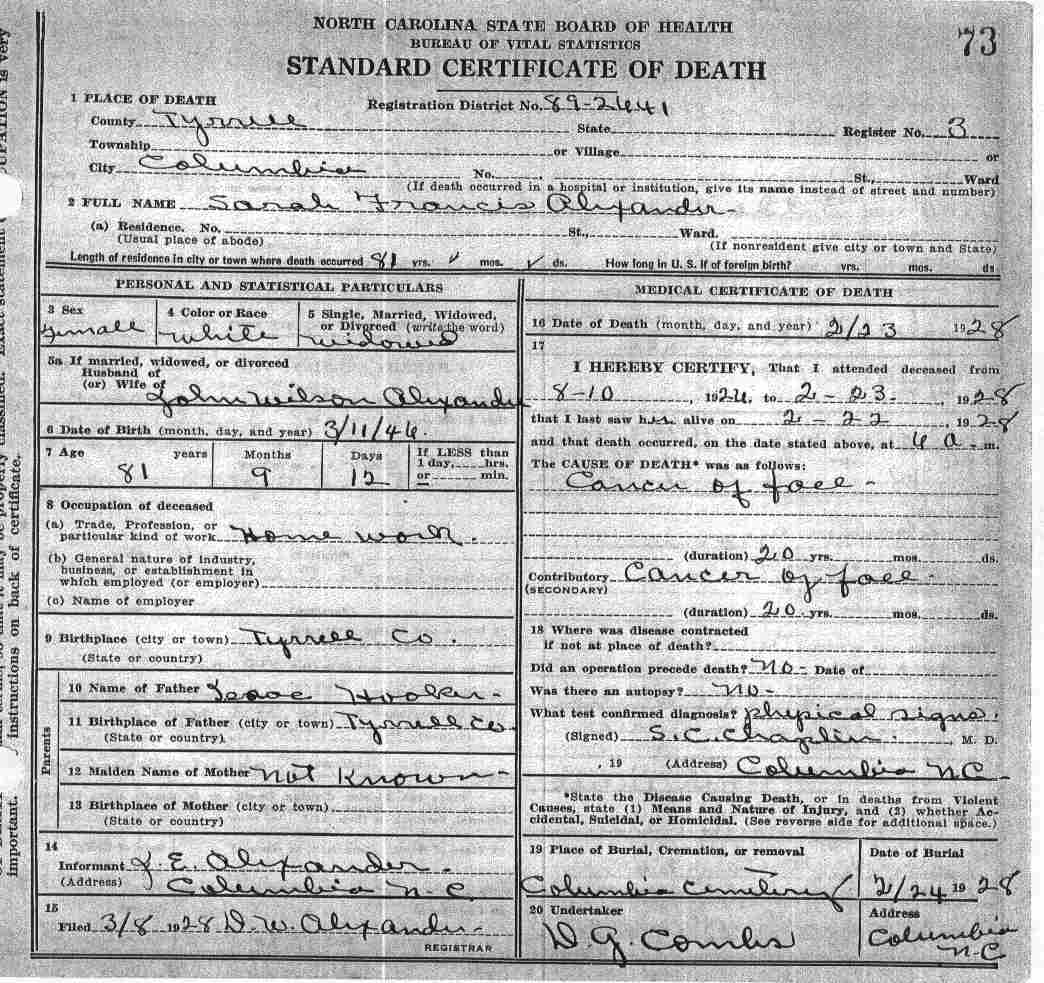 NORTH CAROLINA STATE BOARD OF HEALTH
BUREAU OF VITAL STATISTICS
STANDARD CERTIFICATE OF DEATH
73
1 PLACE OF DEATH Registration District No. 89-2641
County Tyrrell State Register No. 3
Township or Village or
City Columbia No. St., Ward
(If death occurred in a hospital or institution, give its name instead of street and number)
2 FULL NAME Sarah Francis Alexander
(a) Residence. No. St., Ward.
(Usual place of abode) (If nonresident give city or town and State)
Length of residence in city or town where death occurred 81 yrs. ✓ mos. ✓ ds. How long in U. S. if of foreign birth? yrs. mos. ds.
PERSONAL AND STATISTICAL PARTICULARS
3 Sex 4 Color or Race 5 Single, Married, Widowed,
or Divorced (write the word)
Female White Widowed
5a If married, widowed, or divorced
Husband of
(or) Wife of John Wilson Alexander
6 Date of Birth (month, day, and year) 3/11/46.
7 Age years Months Days If LESS than
1 day, hrs.
or min.
81 9 12
8 Occupation of deceased
(a) Trade, Profession, or
particular kind of work Home work.
(b) General nature of industry,
business, or establishment in
which employed (or employer)
(c) Name of employer
9 Birthplace (city or town) Tyrrell Co.
(State or country)
Parents
10 Name of Father Isaac Hooker-
11 Birthplace of Father (city or town) Tyrrell Co
(State or country)
12 Maiden Name of Mother Not Known-
13 Birthplace of Mother (city or town)
(State or country)
14
Informant J. E. Alexander.
(Address) Columbia N.C.
15
Filed 3/8 1928 D. W. Alexander
REGISTRAR
MEDICAL CERTIFICATE OF DEATH
16 Date of Death (month, day, and year) 2/23 1928
17
I HEREBY CERTIFY, That I attended deceased from
8-10, 1924, to 2-23. 1928
that I last saw her alive on 2-22, 1928
and that death occurred, on the date stated above, at 4 a-m.
The CAUSE OF DEATH* was as follows:
Cancer of face-
(duration) 20 yrs. mos. ds.
Contributory Cancer of face-
(SECONDARY)
(duration) 20 yrs. mos. ds.
18 Where was disease contracted
if not at place of death?
Did an operation precede death? No- Date of
Was there an autopsy? No-
What test confirmed diagnosis? physical signs.
(Signed) S. C. Chaplin., M. D.
, 19 (Address) Columbia N.C.
*State the Disease Causing Death, or in deaths from Violent
Causes, state (1) Means and Nature of Injury, and (2) whether Ac-
cidental, Suicidal, or Homicidal. (See reverse side for additional space.)
19 Place of Burial, Cremation, or removal Date of Burial
Columbia Cemetery 2/24 1928
20 Undertaker Address
D G Combs Columbia
N-C
important.
instructions on back of certificate.
be properly classified. Exact statement
UPATION is very